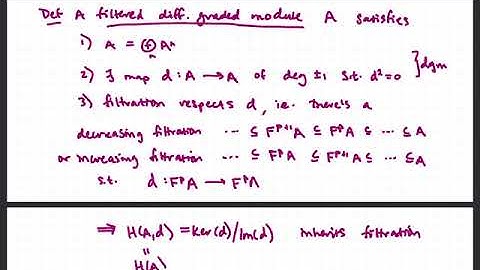 Def A filtered diff. graded module A satisfies
1) A = ⊕ Aⁿ
n
2) ∃ map d : A → A of deg ±1 s.t. d² = 0 } dgm
3) filtration respects d, i.e. there's a
decreasing filtration ⋯ ⊆ Fᵖ⁺¹A ⊆ FᵖA ⊆ ⋯ ⊆ A
or increasing filtration ⋯ ⊆ FᵖA ⊆ Fᵖ⁺¹A ⊆ ⋯ ⊆ A
s.t. d : FᵖA → FᵖA
⟹ H(A,d) = Ker(d)/Im(d) inherits filtration
"
H(A)